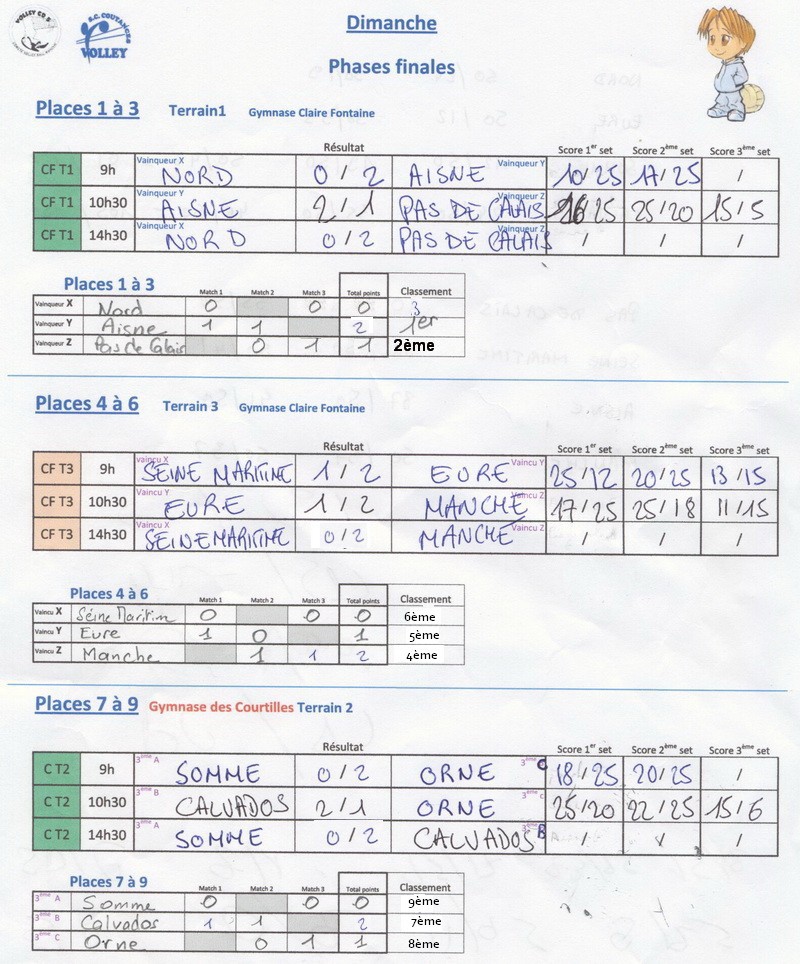 VOLLEY CD 5
S.C. COUTANCES
VOLLEY
Dimanche
Phases finales
Places 1 à 3 Terrain1 Gymnase Claire Fontaine
Résultat Score 1er set Score 2ème set Score 3ème set
CF T1 9h Vainqueur X NORD 0 / 2 AISNE Vainqueur Y 10/25 17/25 /
CF T1 10h30 Vainqueur Y AISNE 2/1 PAS DE CALAIS Vainqueur Z 16/25 25/20 15/5
CF T1 14h30 Vainqueur X NORD 0/2 PAS DE CALAIS Vainqueur Z / / /
Places 1 à 3 Match 1 Match 2 Match 3 Total points Classement
Vainqueur X Nord 0 0 0 3
Vainqueur Y Aisne 1 1 2 1er
Vainqueur Z Pas de Calais 0 1 1 2ème
Places 4 à 6 Terrain 3 Gymnase Claire Fontaine
Résultat Score 1er set Score 2ème set Score 3ème set
CF T3 9h Vaincu X SEINE MARITIME 1 / 2 EURE Vaincu Y 25/12 20/25 13/15
CF T3 10h30 Vaincu Y EURE 1/2 MANCHE Vaincu Z 17/25 25/18 11/15
CF T3 14h30 Vaincu X SEINE MARITIME 0/2 MANCHE Vaincu Z / / /
Places 4 à 6 Match 1 Match 2 Match 3 Total points Classement
Vaincu X Séine Maritim 0 0 0 6ème
Vaincu Y Eure 1 0 1 5ème
Vaincu Z Manche 1 1 2 4ème
Places 7 à 9 Gymnase des Courtilles Terrain 2
Résultat Score 1er set Score 2ème set Score 3ème set
C T2 9h 3ème A SOMME 0 / 2 ORNE 3ème C 18/25 20/25 /
C T2 10h30 3ème B CALVADOS 2/1 ORNE 3ème C 25/20 22/25 15/6
C T2 14h30 3ème A SOMME 0/2 CALVADOS 3ème B / / /
Places 7 à 9 Match 1 Match 2 Match 3 Total points Classement
3ème A Somme 0 0 0 9ème
3ème B Calvados 1 1 2 7ème
3ème C Orne 0 1 1 8ème